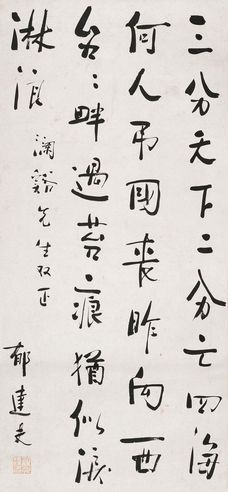 三分天下二分亡四海
何人吊國喪昨向西
台〻畔過苔痕猶似淚
淋浪
瀾谿先生双正
郁達夫